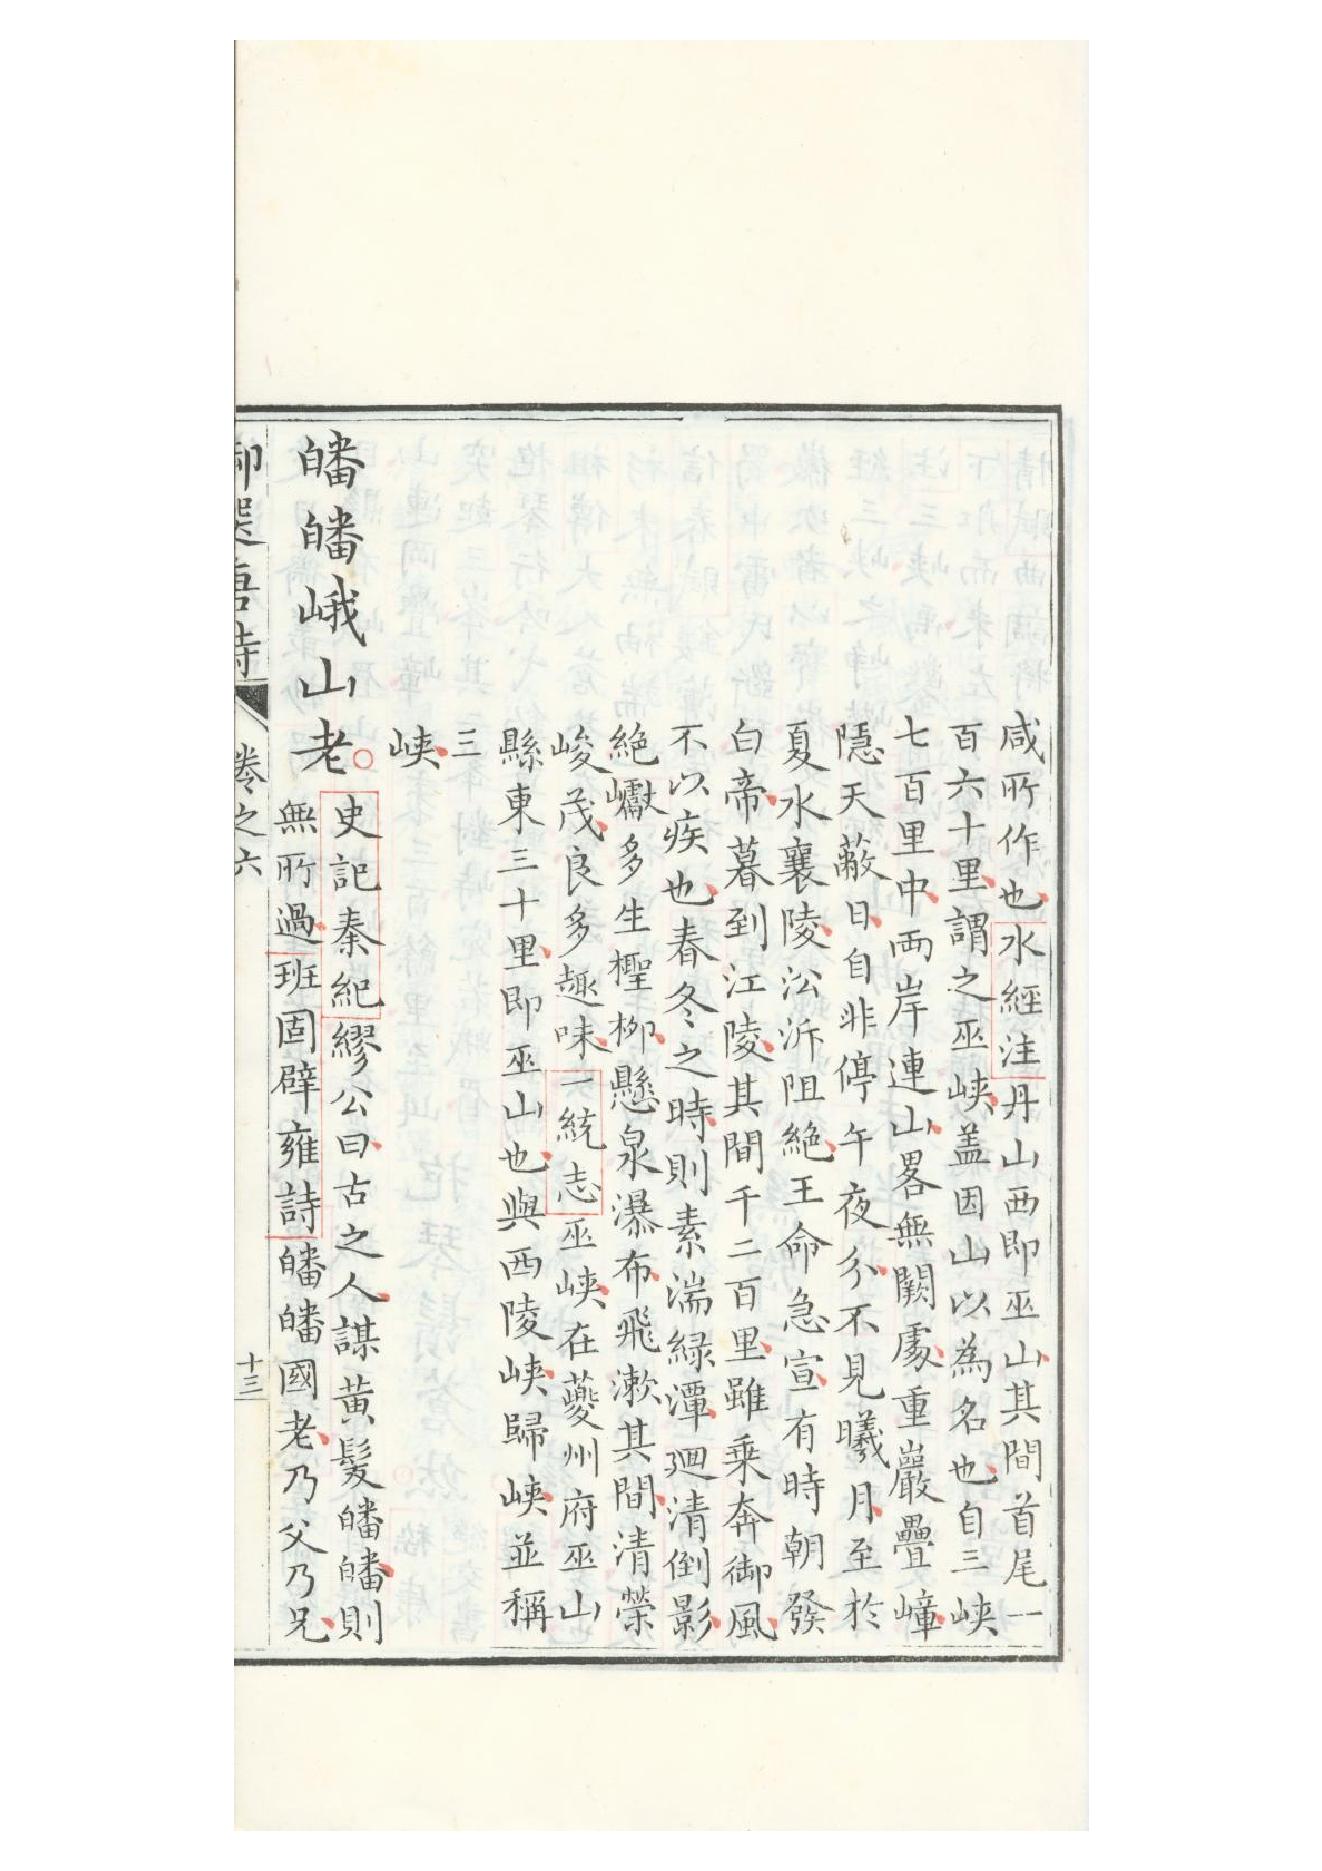 咸所作也水經注丹山西即巫山其間首尾一
百六十里謂之巫峽盖因山以為名也自三峽
七百里中兩岸連山畧無闕處重巖疊嶂
隱天蔽日自非停午夜分不見曦月至於
夏水襄陵㳂泝阻絶王命急宣有時朝發
白帝暮到江陵其間千二百里雖乘奔御風
不以疾也春冬之時則素湍緑潭廻清倒影
絶巘多生檉柳懸泉瀑布飛漱其間清榮
峻茂良多趣味一統志巫峽在夔州府巫山
縣東三十里即巫山也與西陵峽歸峽並稱
三
峽
皤皤峨山老史記秦紀繆公曰古之人謀黃髮皤皤則
無所過班固辟雍詩皤皤國老乃父乃兄
御選唐詩 卷之六 十三